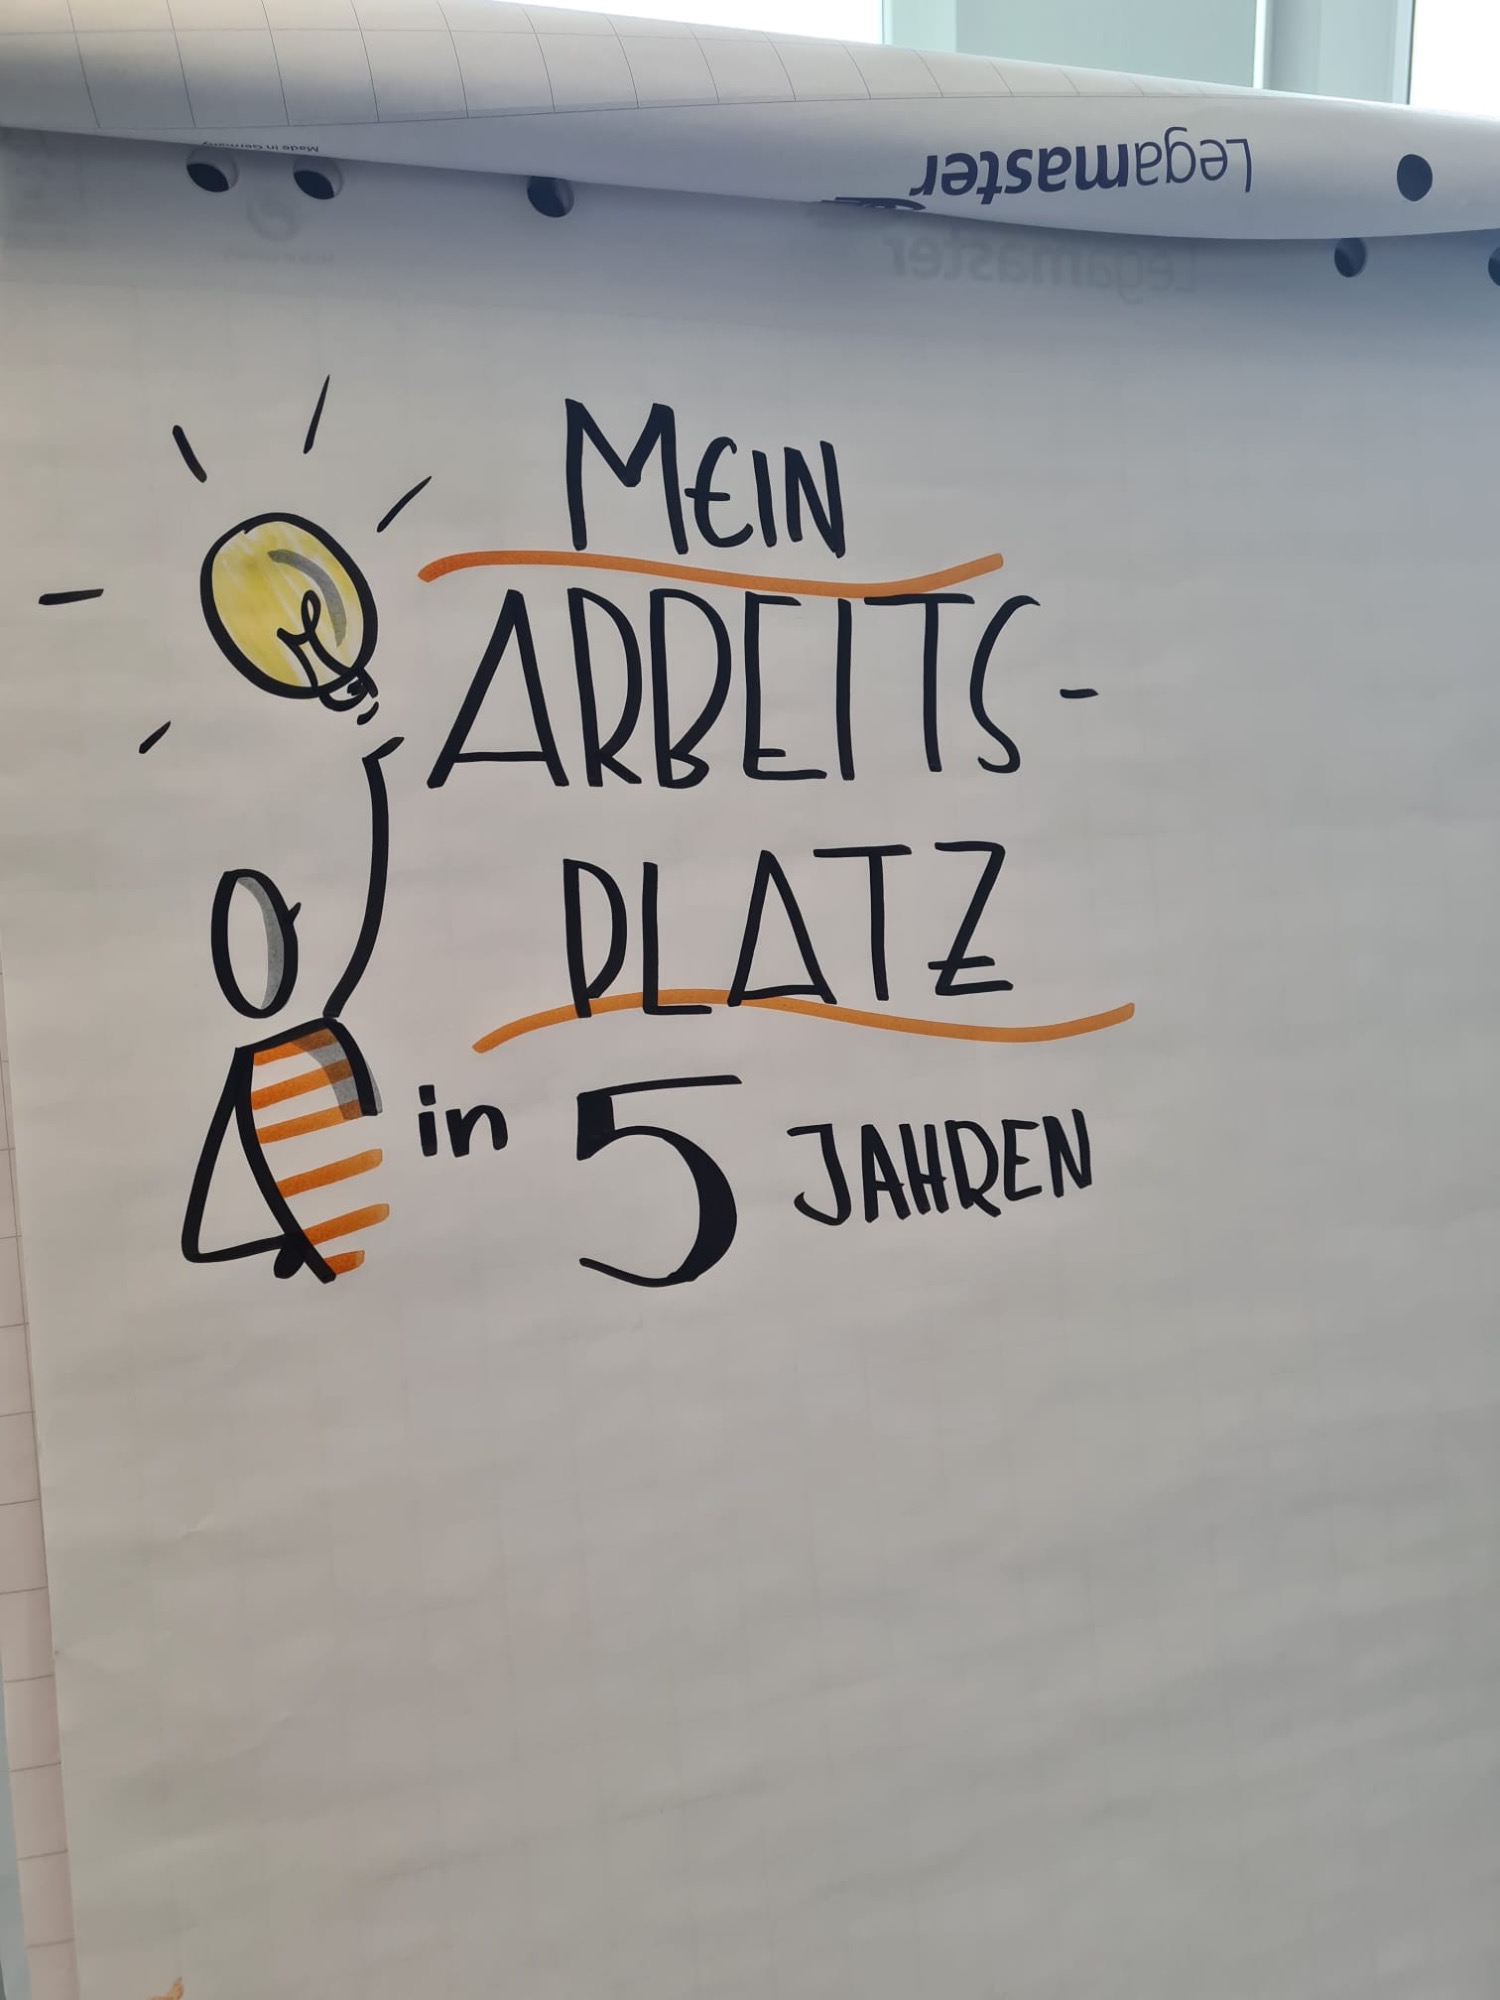 Made in Germany
Legamaster
MEIN
ARBEITS-
PLATZ
in 5 JAHREN